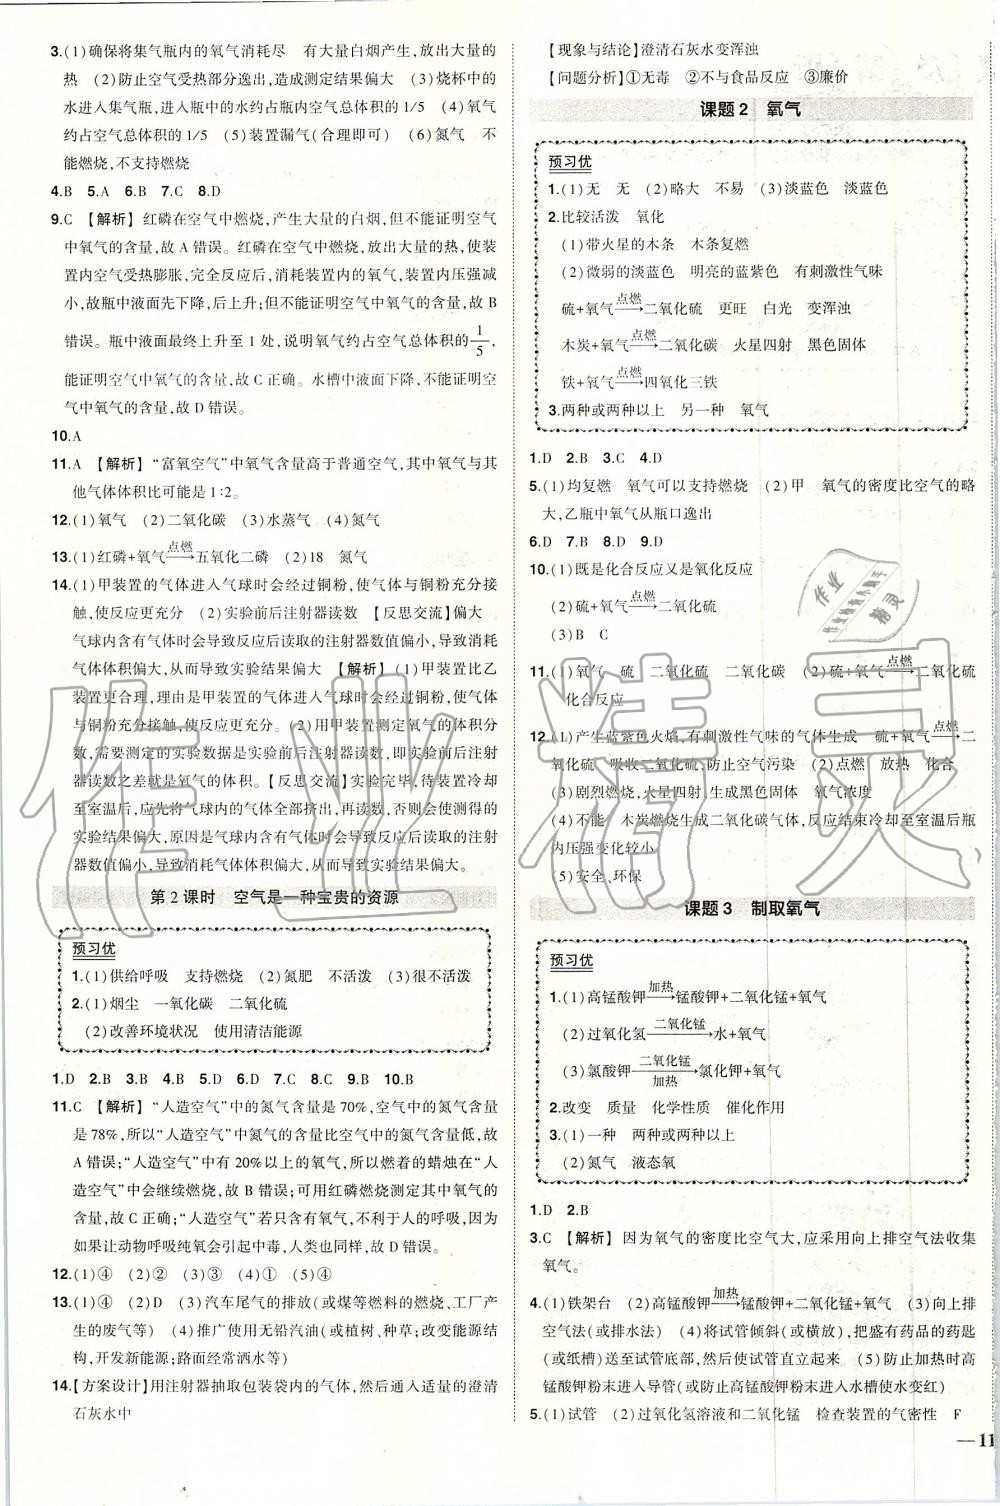 3.(1)确保将集气瓶内的氧气消耗尽　有大量白烟产生,放出大量的
热　(2)防止空气受热部分逸出,造成测定结果偏大　(3)烧杯中的
水进入集气瓶,进入瓶中的水约占瓶内空气总体积的1/5　(4)氧气
约占空气总体积的1/5　(5)装置漏气(合理即可)　(6)氮气　不
能燃烧,不支持燃烧
4.B　5.A　6.B　7.C　8.D
9.C　【解析】红磷在空气中燃烧,产生大量的白烟,但不能证明空气
中氧气的含量,故A错误。红磷在空气中燃烧,放出大量的热,使装
置内空气受热膨胀,完全反应后,消耗装置内的氧气,装置内压强减
小,故瓶中液面先下降,后上升;但不能证明空气中氧气的含量,故B
错误。瓶中液面最终上升至1处,说明氧气约占空气总体积的1/5,
能证明空气中氧气的含量,故C正确。水槽中液面下降,不能证明空
气中氧气的含量,故D错误。
10.A
11.A　【解析】“富氧空气”中氧气含量高于普通空气,其中氧气与其
他气体体积比可能是1∶2。
12.(1)氧气　(2)二氧化碳　(3)水蒸气　(4)氮气
13.(1)红磷+氧气 点燃→ 五氧化二磷　(2)18　氮气
14.(1)甲装置的气体进入气球时会经过铜粉,使气体与铜粉充分接
触,使反应更充分　(2)实验前后注射器读数　【反思交流】偏大
气球内含有气体时会导致反应后读取的注射器数值偏小,导致消耗
气体体积偏大,从而导致实验结果偏大　【解析】(1)甲装置比乙
装置更合理,理由是甲装置的气体进入气球时会经过铜粉,使气体
与铜粉充分接触,使反应更充分。(2)用甲装置测定氧气的体积分
数,需要测定的实验数据是实验前后注射器读数,即实验前后注射
器读数之差就是氧气的体积。【反思交流】实验完毕,待装置冷却
至室温后,应先将气球内的气体全部挤出,再读数,否则会使测得的
实验结果偏大,原因是气球内含有气体时会导致反应后读取的注射
器数值偏小,导致消耗气体体积偏大,从而导致实验结果偏大。
第2课时　空气是一种宝贵的资源
预习优
1.(1)供给呼吸　支持燃烧　(2)氮肥　不活泼　(3)很不活泼
2.(1)烟尘　一氧化碳　二氧化硫
(2)改善环境状况　使用清洁能源
1.D　2.B　3.B　4.B　5.D　6.D　7.C　8.B　9.B　10.B
11.C　【解析】“人造空气”中的氮气含量是70%,空气中的氮气含量
是78%,所以“人造空气”中氮气的含量比空气中的氮气含量低,故
A错误;“人造空气”中有20%以上的氧气,所以燃着的蜡烛在“人
造空气”中会继续燃烧,故B错误;可用红磷燃烧测定其中氧气的
含量,故C正确;“人造空气”若只含有氧气,不利于人的呼吸,因为
如果让动物呼吸纯氧会引起中毒,人类也同样,故D错误。
12.(1)④　(2)②　(3)③　(4)①　(5)④
13.(1)④　(2)D　(3)汽车尾气的排放(或煤等燃料的燃烧、工厂产
生的废气等)　(4)推广使用无铅汽油(或植树,种草;改变能源结
构,开发新能源;路面经常洒水等)
14.【方案设计】用注射器抽取包装袋内的气体,然后通入适量的澄清
石灰水中
【现象与结论】澄清石灰水变浑浊
【问题分析】①无毒　②不与食品反应　③廉价
课题2　氧气
预习优
1.(1)无　无　(2)略大　不易　(3)淡蓝色　淡蓝色
2.比较活泼　氧化
(1)带火星的木条　木条复燃
(2)微弱的淡蓝色　明亮的蓝紫色　有刺激性气味
硫+氧气 点燃→ 二氧化硫　更旺　白光　变浑浊
木炭+氧气 点燃→ 二氧化碳　火星四射　黑色固体
铁+氧气 点燃→ 四氧化三铁
3.两种或两种以上　另一种　氧气
1.D　2.B　3.C　4.D
5.(1)均复燃　氧气可以支持燃烧　(2)甲　氧气的密度比空气的略
大,乙瓶中氧气从瓶口逸出
6.D　7.D　8.D　9.D
10.(1)既是化合反应又是氧化反应
(2)硫+氧气 点燃→ 二氧化硫
(3)B　C
11.(1)氧气　硫　二氧化硫　二氧化碳　(2)硫+氧气 点燃→ 二氧化硫
化合反应
12.(1)产生蓝紫色火焰,有刺激性气味的气体生成　硫+氧气 点燃→ 二
氧化硫　吸收二氧化硫,防止空气污染　(2)点燃　放热　化合
(3)剧烈燃烧,火星四射,生成黑色固体　氧气浓度
(4)不能　木炭燃烧生成二氧化碳气体,反应结束冷却至室温后瓶
内压强变化较小
(5)安全、环保
课题3　制取氧气
预习优
1.(1)高锰酸钾 加热→ 锰酸钾+二氧化锰+氧气
(2)过氧化氢 二氧化锰→ 水+氧气
(3)氯酸钾 二氧化锰/加热→ 氯化钾+氧气
2.改变　质量　化学性质　催化作用
3.(1)一种　两种或两种以上
(2)氮气　液态氧
1.D　2.B
3.C　【解析】因为氧气的密度比空气大,应采用向上排空气法收集
氧气。
4.(1)铁架台　(2)高锰酸钾 加热→ 锰酸钾+二氧化锰+氧气　(3)向上排
空气法(或排水法)　(4)将试管倾斜(或横放),把盛有药品的药匙
(或纸槽)送至试管底部,然后使试管直立起来　(5)防止加热时高
锰酸钾粉末进入导管(或防止高锰酸钾粉末进入水槽使水变红)
5.(1)试管　(2)过氧化氢溶液和二氧化锰　检查装置的气密性　F
— 11
作业精灵
作业
精灵